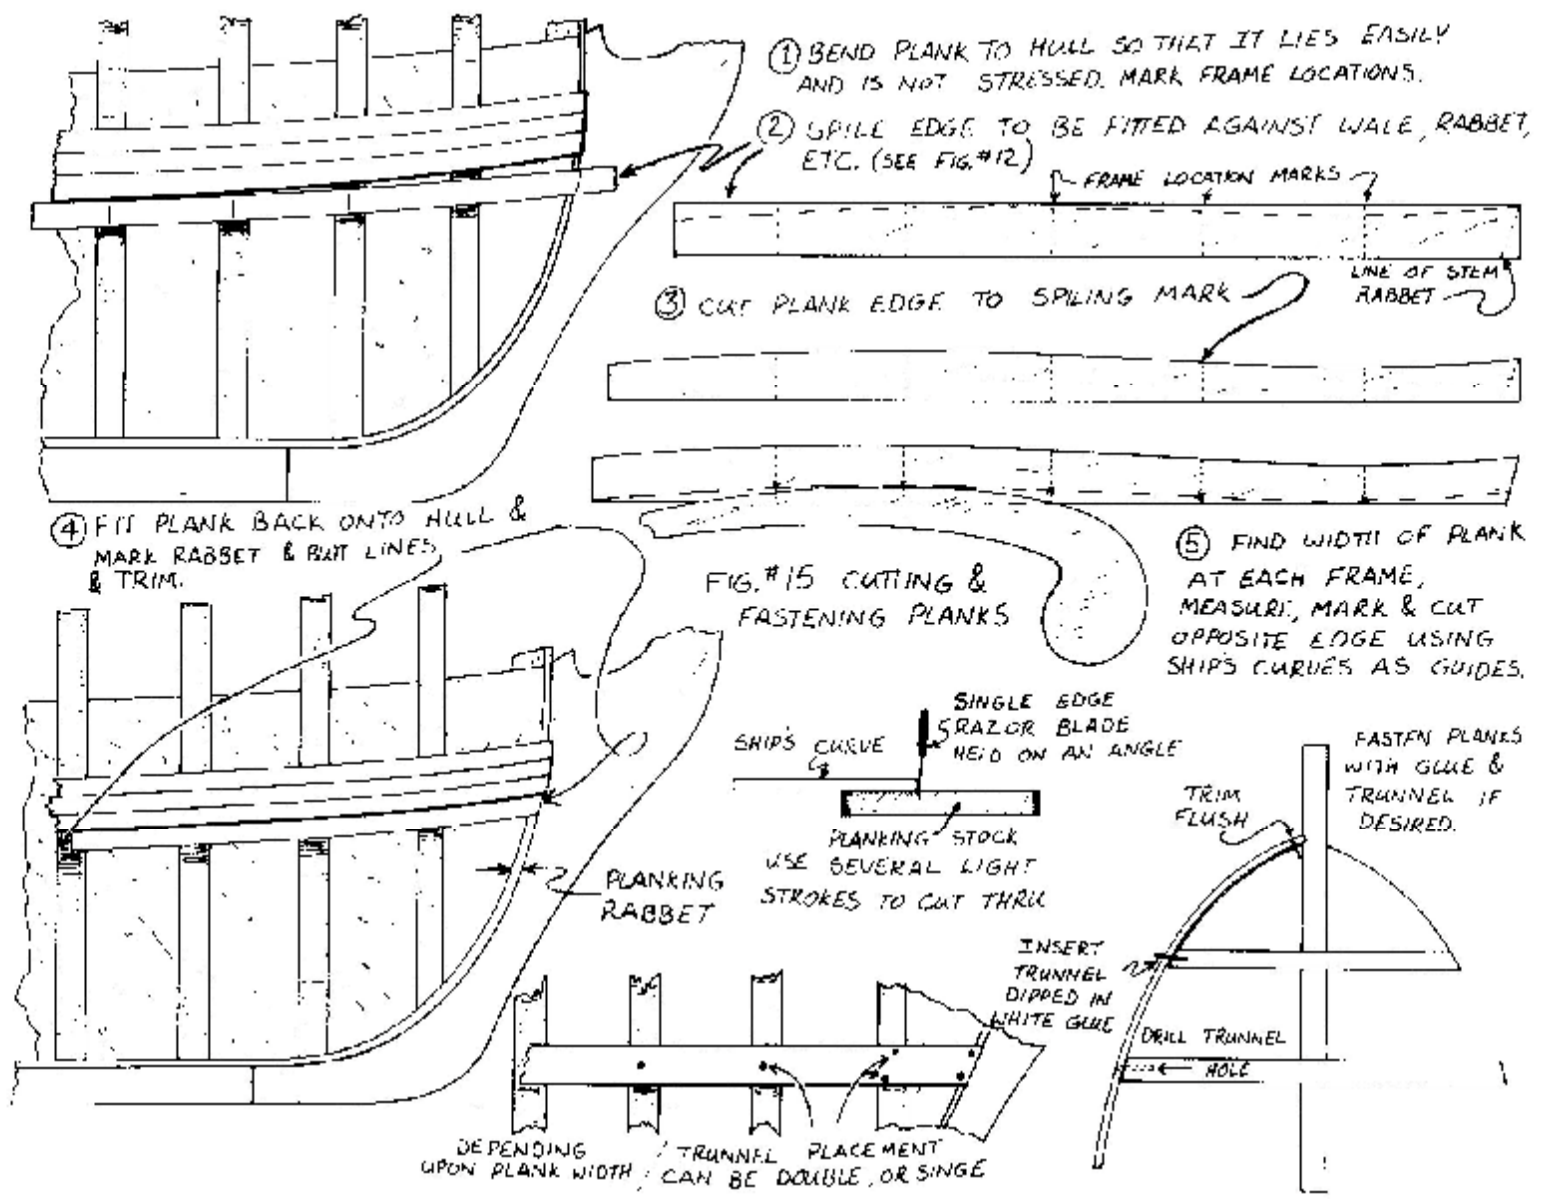 ① BEND PLANK TO HULL SO THET IT LIES EASILY
AND IS NOT STRESSED. MARK FRAME LOCATIONS.
② SPILE EDGE TO BE FITTED AGAINST WALE, RABBET,
ETC. (SEE FIG.#12)
FRAME LOCATION MARKS
LINE OF STEM
RABBET
③ CUT PLANK EDGE TO SPILING MARK
④ FIT PLANK BACK ONTO HULL &
MARK RABBET & BUTT LINES
& TRIM.
FIG.#15 CUTTING &
FASTENING PLANKS
⑤ FIND WIDTH OF PLANK
AT EACH FRAME,
MEASURE, MARK & CUT
OPPOSITE EDGE USING
SHIP'S CURVES AS GUIDES.
SINGLE EDGE
RAZOR BLADE
HELD ON AN ANGLE
SHIP'S CURVE
PLANKING STOCK
USE SEVERAL LIGHT
STROKES TO CUT THRU
PLANKING
RABBET
FASTEN PLANKS
WITH GLUE &
TRUNNEL IF
DESIRED.
TRIM
FLUSH
INSERT
TRUNNEL
DIPPED IN
WHITE GLUE
DRILL TRUNNEL
HOLE
DEPENDING
UPON PLANK WIDTH
TRUNNEL PLACEMENT
CAN BE DOUBLE, OR SINGE